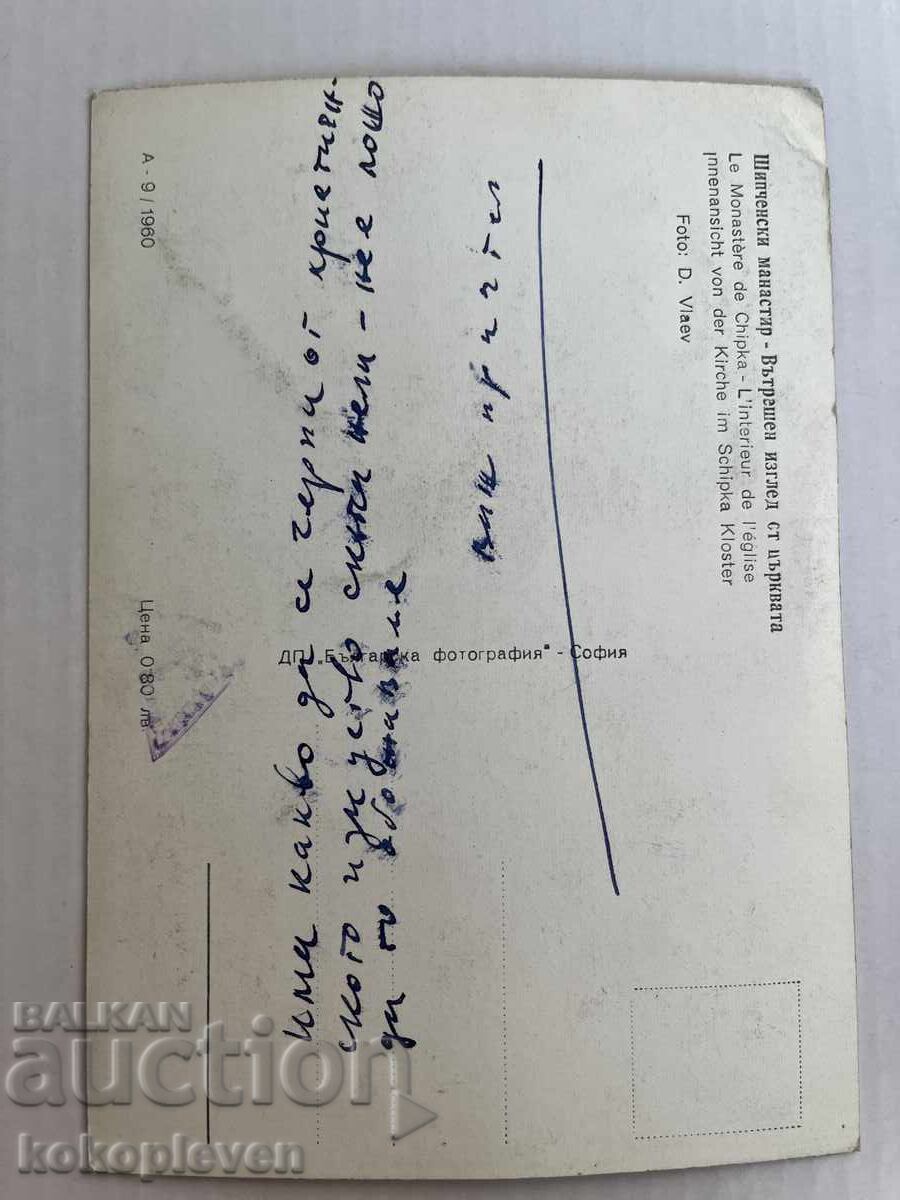 Шипченски манастир - Вътрешен изглед от църквата
Le Monastère de Chipka - L'interieur de l'église
Innenansicht von der Kirche im Schipka Kloster
Foto: D. Vlaev
ДП „Българска фотография" - София
А - 9 / 1960
Цена 0'80 лв
има какво да се черпи от християн-
ското изкуство скъпи - не е лошо
да го
виж
BALKAN
auction
kokopleven